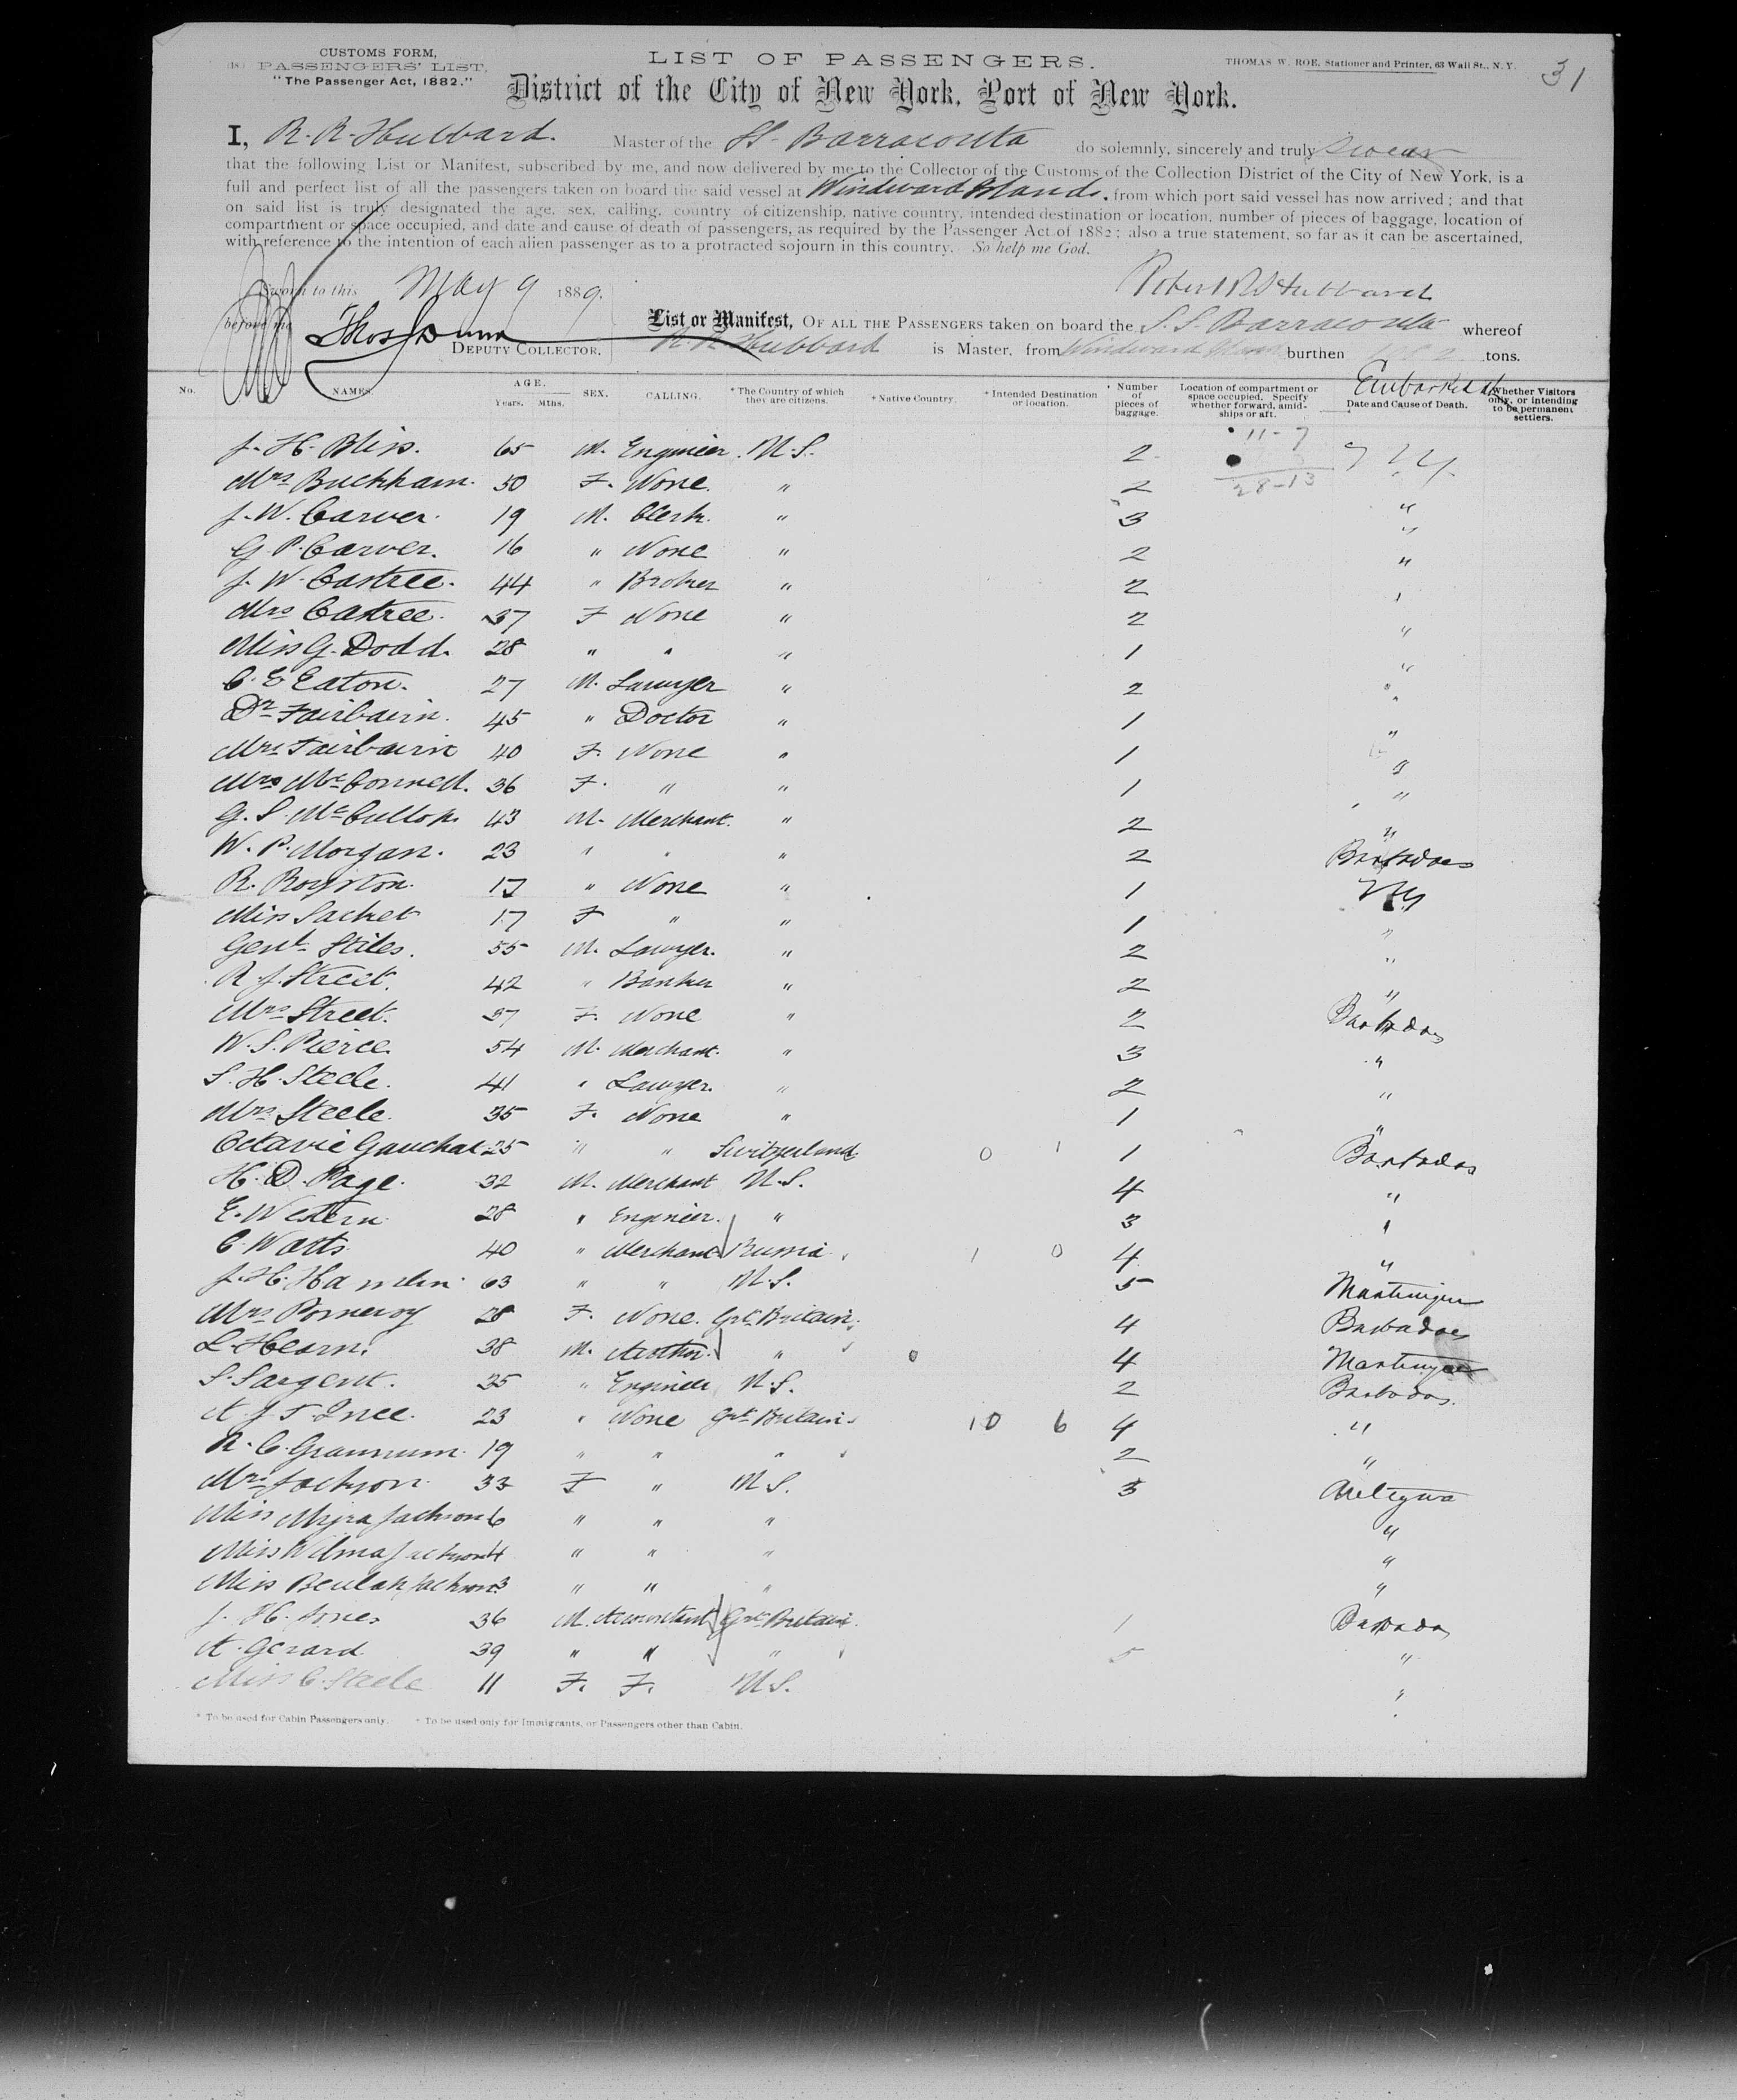 CUSTOMS FORM,
PASSENGERS' LIST,
"The Passenger Act, 1882."
LIST OF PASSENGERS.
THOMAS W. ROE, Stationer and Printer, 63 Wall St., N.Y.
31
District of the City of New York, Port of New York.
I, R. R. Hubbard. Master of the SS. Barracouta do solemnly, sincerely and truly swear
that the following List or Manifest, subscribed by me, and now delivered by me to the Collector of the Customs of the Collection District of the City of New York, is a
full and perfect list of all the passengers taken on board the said vessel at Windward Islands, from which port said vessel has now arrived; and that
on said list is truly designated the age, sex, calling, country of citizenship, native country, intended destination or location, number of pieces of baggage, location of
compartment or space occupied, and date and cause of death of passengers, as required by the Passenger Act of 1882; also a true statement, so far as it can be ascertained,
with reference to the intention of each alien passenger as to a protracted sojourn in this country. So help me God.
Sworn to this May 9 1889.
Robert R Hubbard
before me Thos Dunn
DEPUTY COLLECTOR.
List or Manifest, OF ALL THE PASSENGERS taken on board the S.S. Barracouta whereof
R. R. Hubbard is Master, from Windward burthen tons.
No. NAMES. AGE. Years. Mths. SEX. CALLING. * The Country of which they are citizens. + Native Country. + Intended Destination or location. * Number of pieces of baggage. Location of compartment or space occupied. Specify whether forward, amidships or aft. Embarked at Date and Cause of Death. Whether Visitors only, or intending to be permanent settlers.
11-7
28-13
J. H. Bliss. 65 M. Engineer U.S. 2
Mrs Buckham. 50 F. None. " 2 "
J. W. Carver. 19 M. Clerk. " 3 "
G. P. Carver. 16 " None " 2 "
J. W. Castree. 44 " Broker " 2 "
Mrs Castree. 37 F None " 2 "
Miss G. Dodd. 28 " " " 1 "
C. E Eaton. 27 M. Lawyer " 2 "
Dr Fairbairn. 45 " Doctor " 1 "
Mrs Fairbairn 40 F. None " 1 "
Mrs McConnell. 36 F. " " 1 "
G. S. McCulloh. 43 M. Merchant. " 2 "
W. P. Morgan. 23 " " " 2 Barbadoes
R. Royston. 17 " None " 1
Miss Sachet 17 F " " 1 "
Genl. Stiles. 55 M. Lawyer. " 2 "
R. J. Street. 42 " Banker " 2 "
Mrs Street. 37 F. None " 2 Barbados
W. S. Pierce. 54 M. Merchant. " 3 "
S. H. Steele. 41 " Lawyer. " 2 "
Mrs Steele. 35 F. None " 1 "
Octavie Gauchat 25 " " Switzerland 0 1 1 Barbados
H. D. Page. 32 M. Merchant U.S. 4 "
E. Western 28 " Engineer. " 3 "
C. Watts 40 " Merchant Russia 1 0 4 "
J. H. Hamlin. 63 " " U.S. 5 Martinique
Mrs Pomeroy 28 F. None. Grt. Britain. 4 Barbadoes
L. Hearn. 38 M. Author. " 0 4 Martinique
S. Sargent. 35 " Engineer U.S. 2 Barbados.
A J T Ince. 23 " None Grt. Britain 10 6 4 "
R. C. Grannum. 19 " " " 2 "
Mrs Jackson. 33 F " U.S. 3 Antigua
Miss Myra Jackson 6 " " " "
Miss Wilma Jackson 4 " " " "
Miss Beulah Jackson 3 " " " "
J. H. Jones 36 M. Accountant Grt. Britain. 1 Barbados
A. Gerard 39 " " " 5 "
Miss C. Steele 11 F. F. U.S. "
* To be used for Cabin Passengers only. + To be used only for Immigrants, or Passengers other than Cabin.